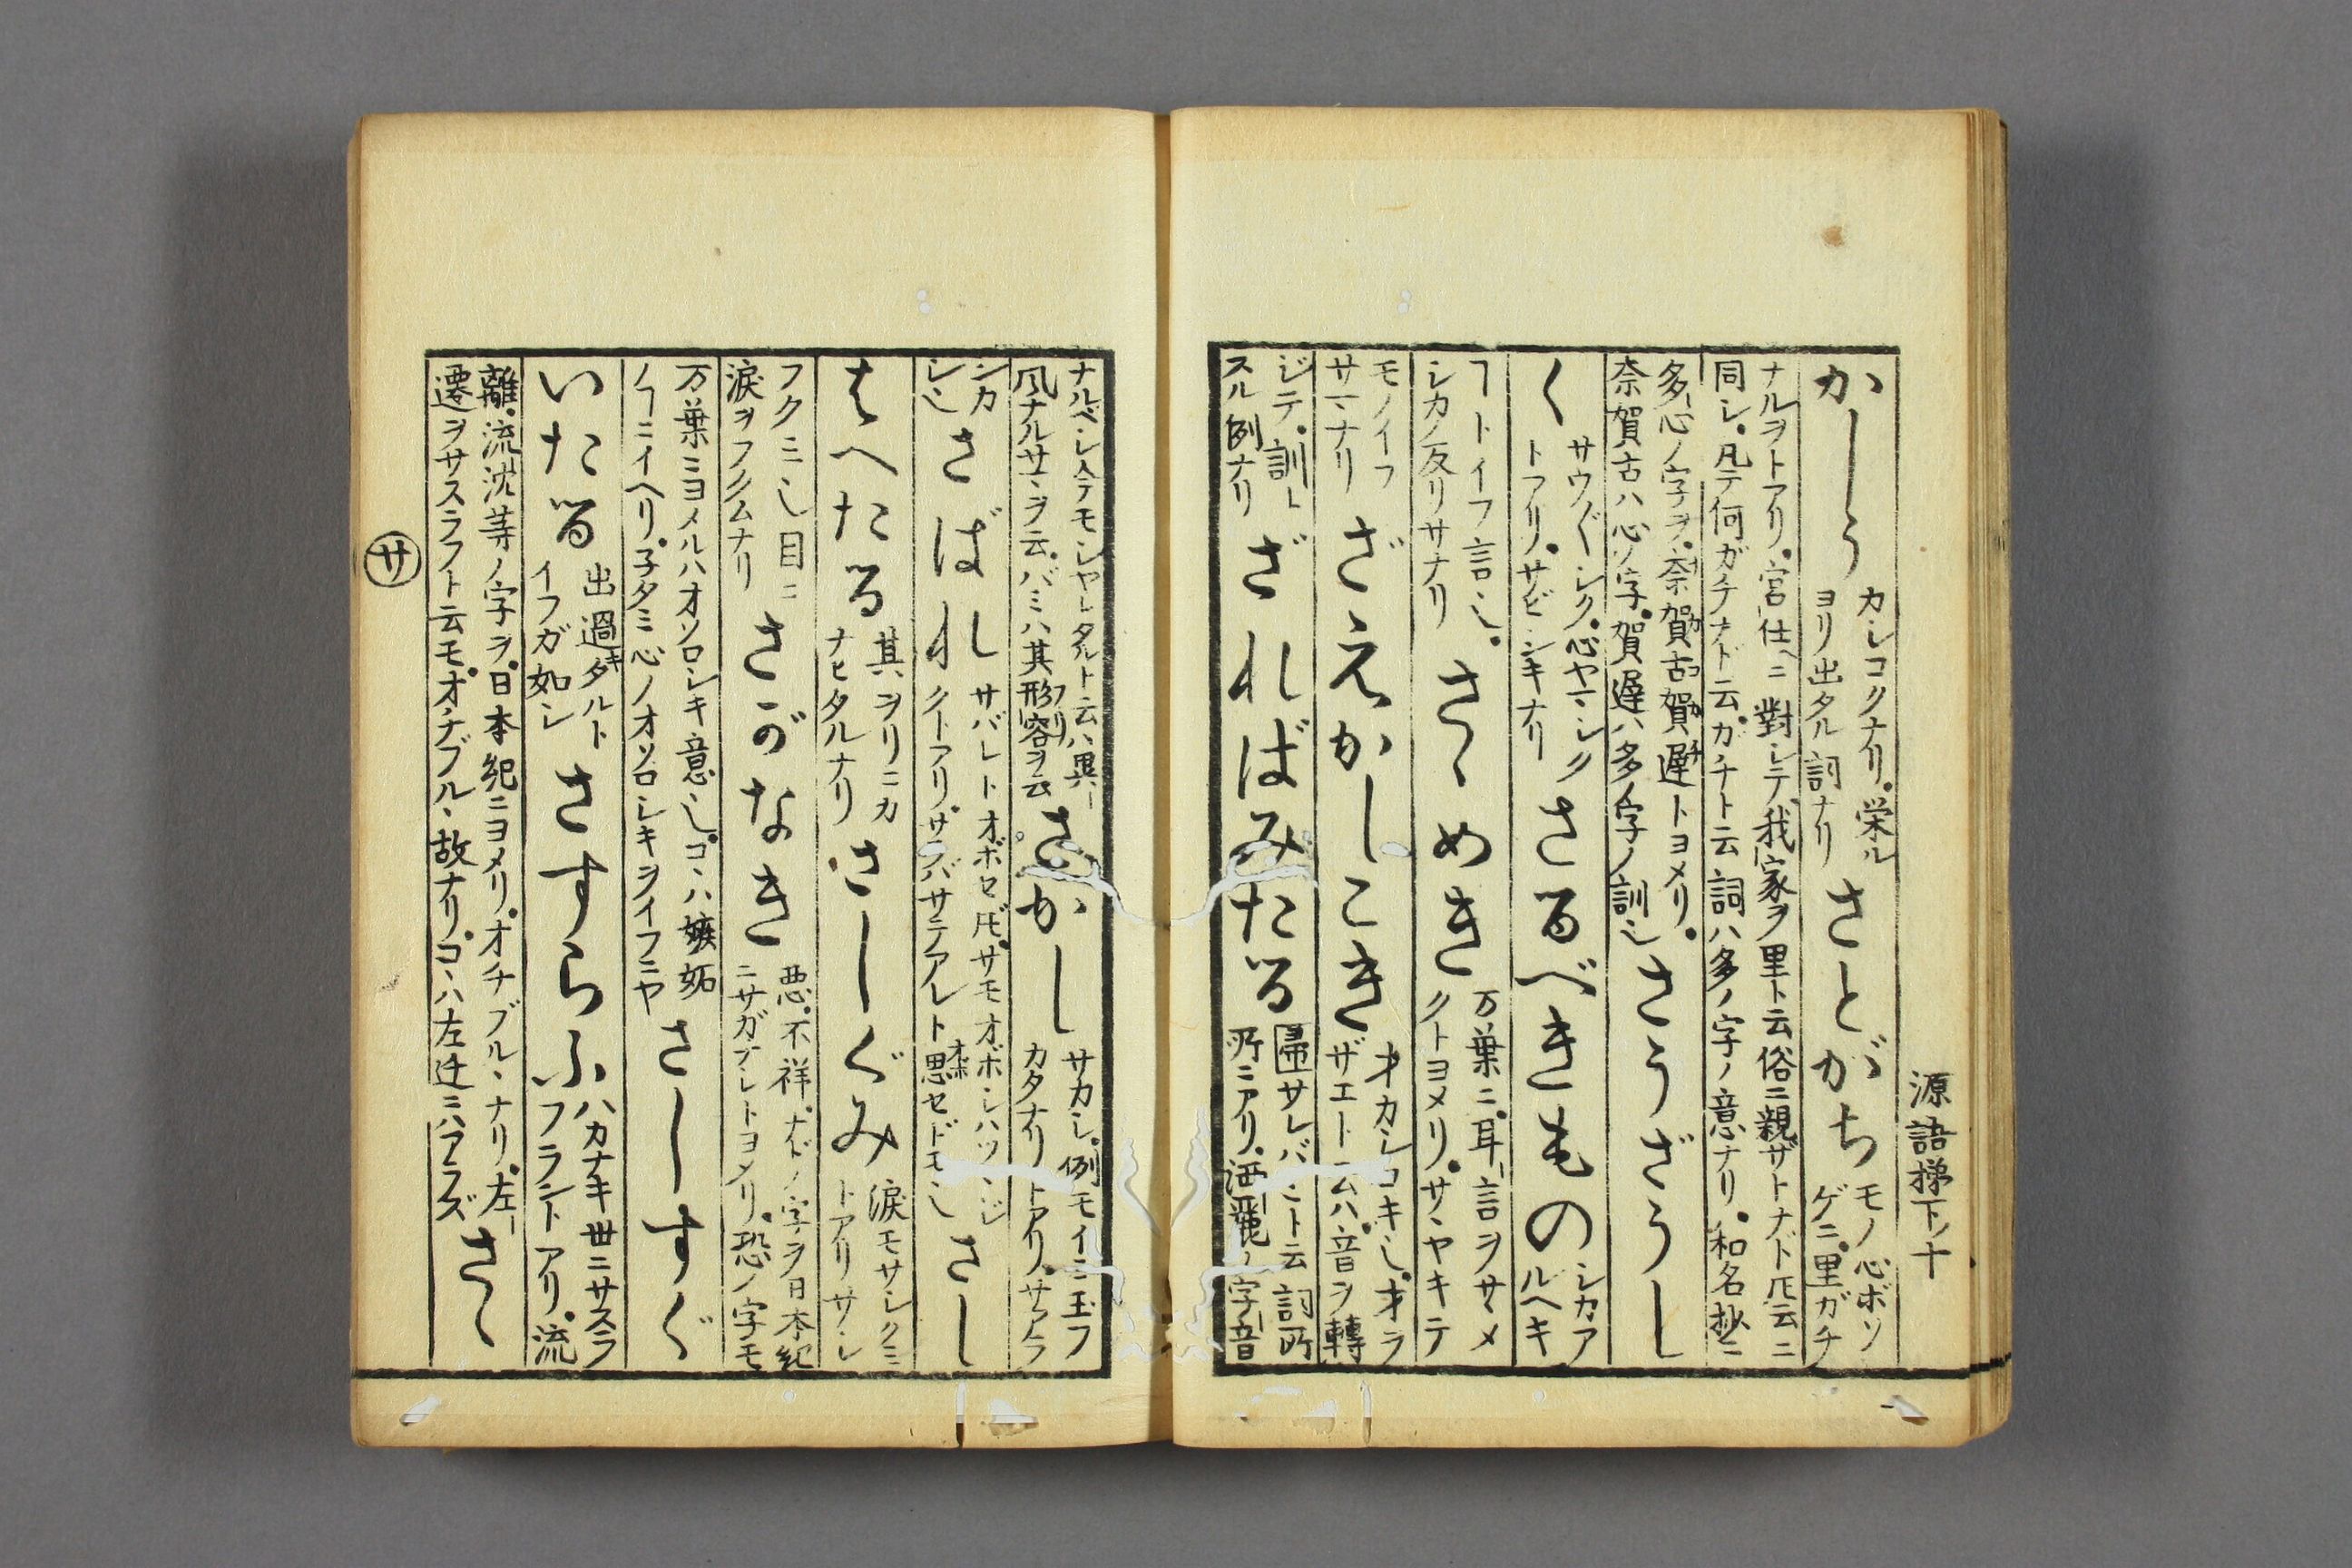 源語梯下ノ十
かしう カシコクナリ。栄ル
ヨリ出タル詞ナリ さとがち モノ心ボソ
ゲニ。里ガチ
ナルヲトアリ。宮仕ヘニ對シテ我家ヲ里ト云俗ニ親ザトナド厇云ニ
同シ。凡テ何ガチナド云。カチト云詞ハ多ノ字ノ意ナリ。和名抄ニ
多心ノ字ヲ。奈賀古賀遅トヨメリ。
奈賀古ハ心ノ字。賀遅ハ多ノ字ノ訓乄 さうざうし
く サウ〴〵シク。心ヤマシク
トアリ。サビシキナリ さるべきもの シカア
ルヘキ
ヿトイフ言乄。
シカノ反リサナリ さゝめき 万葉ニ。耳言ヲサヽメ
クトヨメリ。サヽヤキテ
モノイフ
サマナリ ざえかしこき オカシコキ乄。オヲ
ザエト云ハ。音ヲ轉
ジテ。訓ト
スル例ナリ ざればみたる 帚サレバミト云詞所
所ニアリ。洒麗ノ字音
ナルベシ今モシヤレタルト云ハ異ナ
風ナルサマヲ云。バミハ其形容ヲ云 さかし サカシ。例モイミ玉フ
カタナリトアリ。サアラ
ンカ
シ乄 さばれ サバレトオボセ𪜈。サモオボシハツマジ
クトアリ。サラバサテアレト思セドモ乄 さし
はへたる 其ヲリニカ
ナヒタルナリ さしぐみ 涙モサシクミ
トアリサシ
フクミ乄目ニ
涙ヲフクムナリ さがなき 悪。不祥。ナドノ字ヲ日本紀
ニサガナシトヨメリ。恐ノ字モ
万葉ニヨメルハオソロシキ意乄。コヽハ嫉妬
ノヿニイヘリ。子タミ心ノオソロシキヲイフニヤ さしすぐ
いたる 出過キタルト
イフガ如シ さすらふ ハカナキ世ニサスラ
フラントアリ。流
離。流沈等ノ字ヲ。日本紀ニヨメリ。オチブルヽナリ。左
遷ヲサスラフト云モ。オチブルヽ故ナリ。コヽハ左迁ニハアラズ さゝ
サ